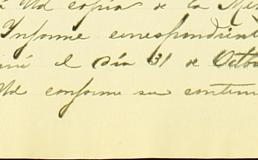 Ud copia de la
Informe correspondient
el día 31 de Octub
Ud conforme su conteni